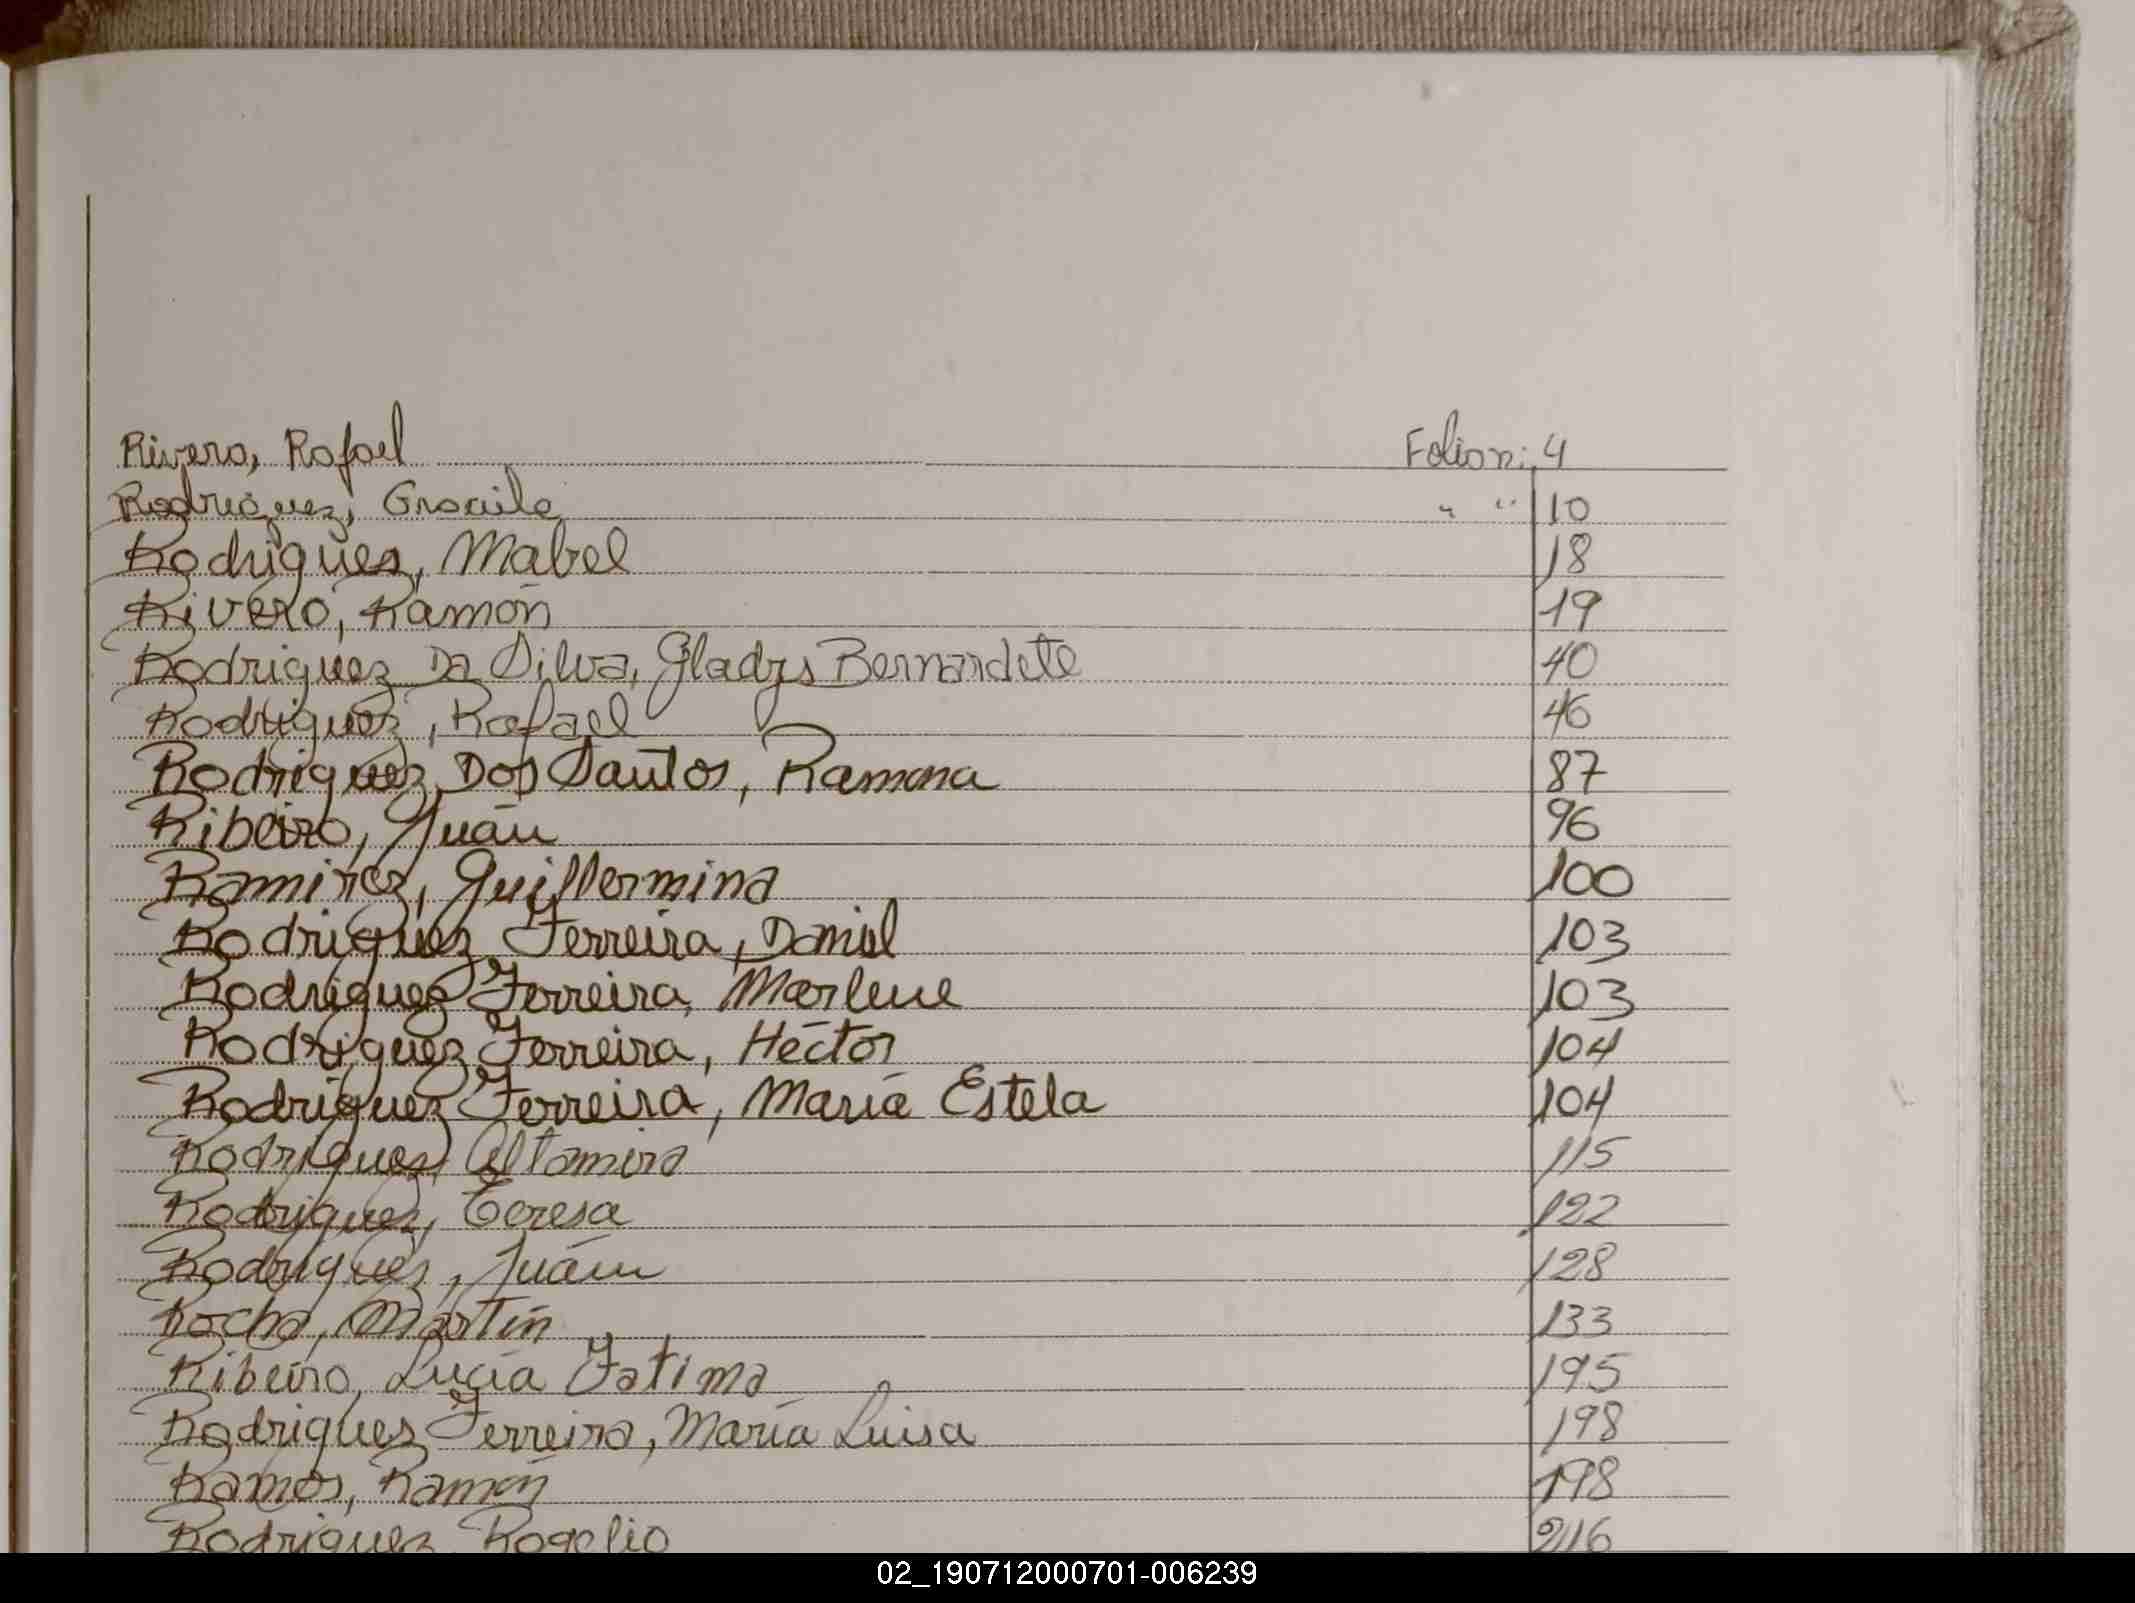 Rivero, Rafael Folio n: 4
Rodriguez, " " 10
Rodriguez, Mabel 18
Rivero, Ramón 19
Rodriguez Da Silva, Gladys Bernardete 40
Rodriguez, Rafael 46
Rodriguez Dos Santos, Ramona 87
Ribeiro, Juán 96
Ramirez, Guillermina 100
Rodriguez Ferreira, Daniel 103
Rodriguez Ferreira, Marlene 103
Rodriguez Ferreira, Héctor 104
Rodriguez Ferreira, María Estela 104
Rodriguez, Altamira 115
Rodriguez, Teresa 122
Rodriguez, Juán 128
Rocha, Martín 133
Ribeiro, Lucía Fatima 195
Rodriguez Ferreira, María Luisa 198
Ramos, Ramón 198
Rodriguez, Rogelio 216
02_190712000701-006239